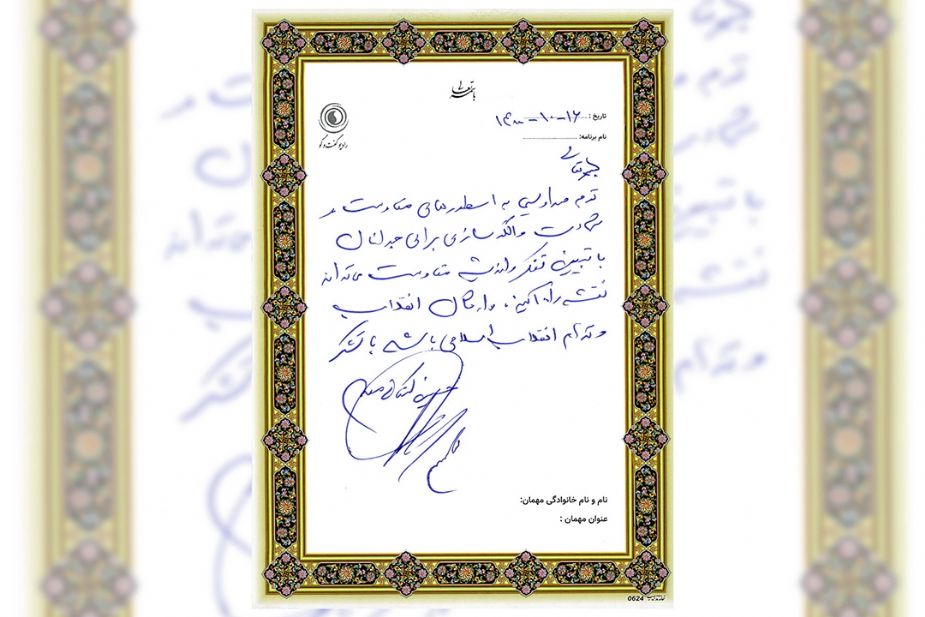 باسمه تعالی
رادیو گفت و گو
تاریخ : ۱۴۰۰-۱۰-۱۶
نام برنامه:
باسمه تعالی
توجه صدا و سیما به اسطوره‌های مقاومت و
شهادت و الگوسازی برای جوانان
با تبیین تفکر و اندیشه مقاومت می‌تواند
نقشه راه، وارثان انقلاب
و تداوم انقلاب اسلامی باشد با تشکر
نام و نام خانوادگی مهمان:
عنوان مهمان :
0624